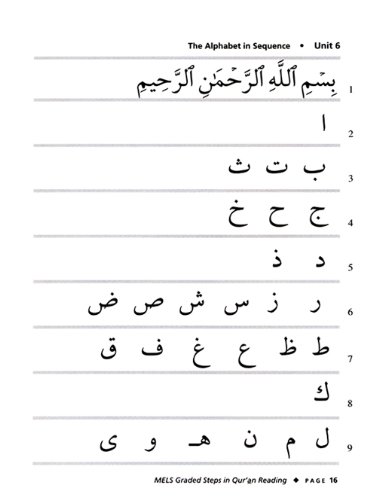 The Alphabet in Sequence • Unit 6
بِسْمِ ٱللَّهِ ٱلرَّحْمَٰنِ ٱلرَّحِيمِ 1
ا 2
ب ت ث 3
ج ح خ 4
د ذ 5
ر ز س ش ص ض 6
ط ظ ع غ ف ق 7
ك 8
ل م ن هـ و ى 9
MELS Graded Steps in Qur'an Reading ◆ PAGE 16